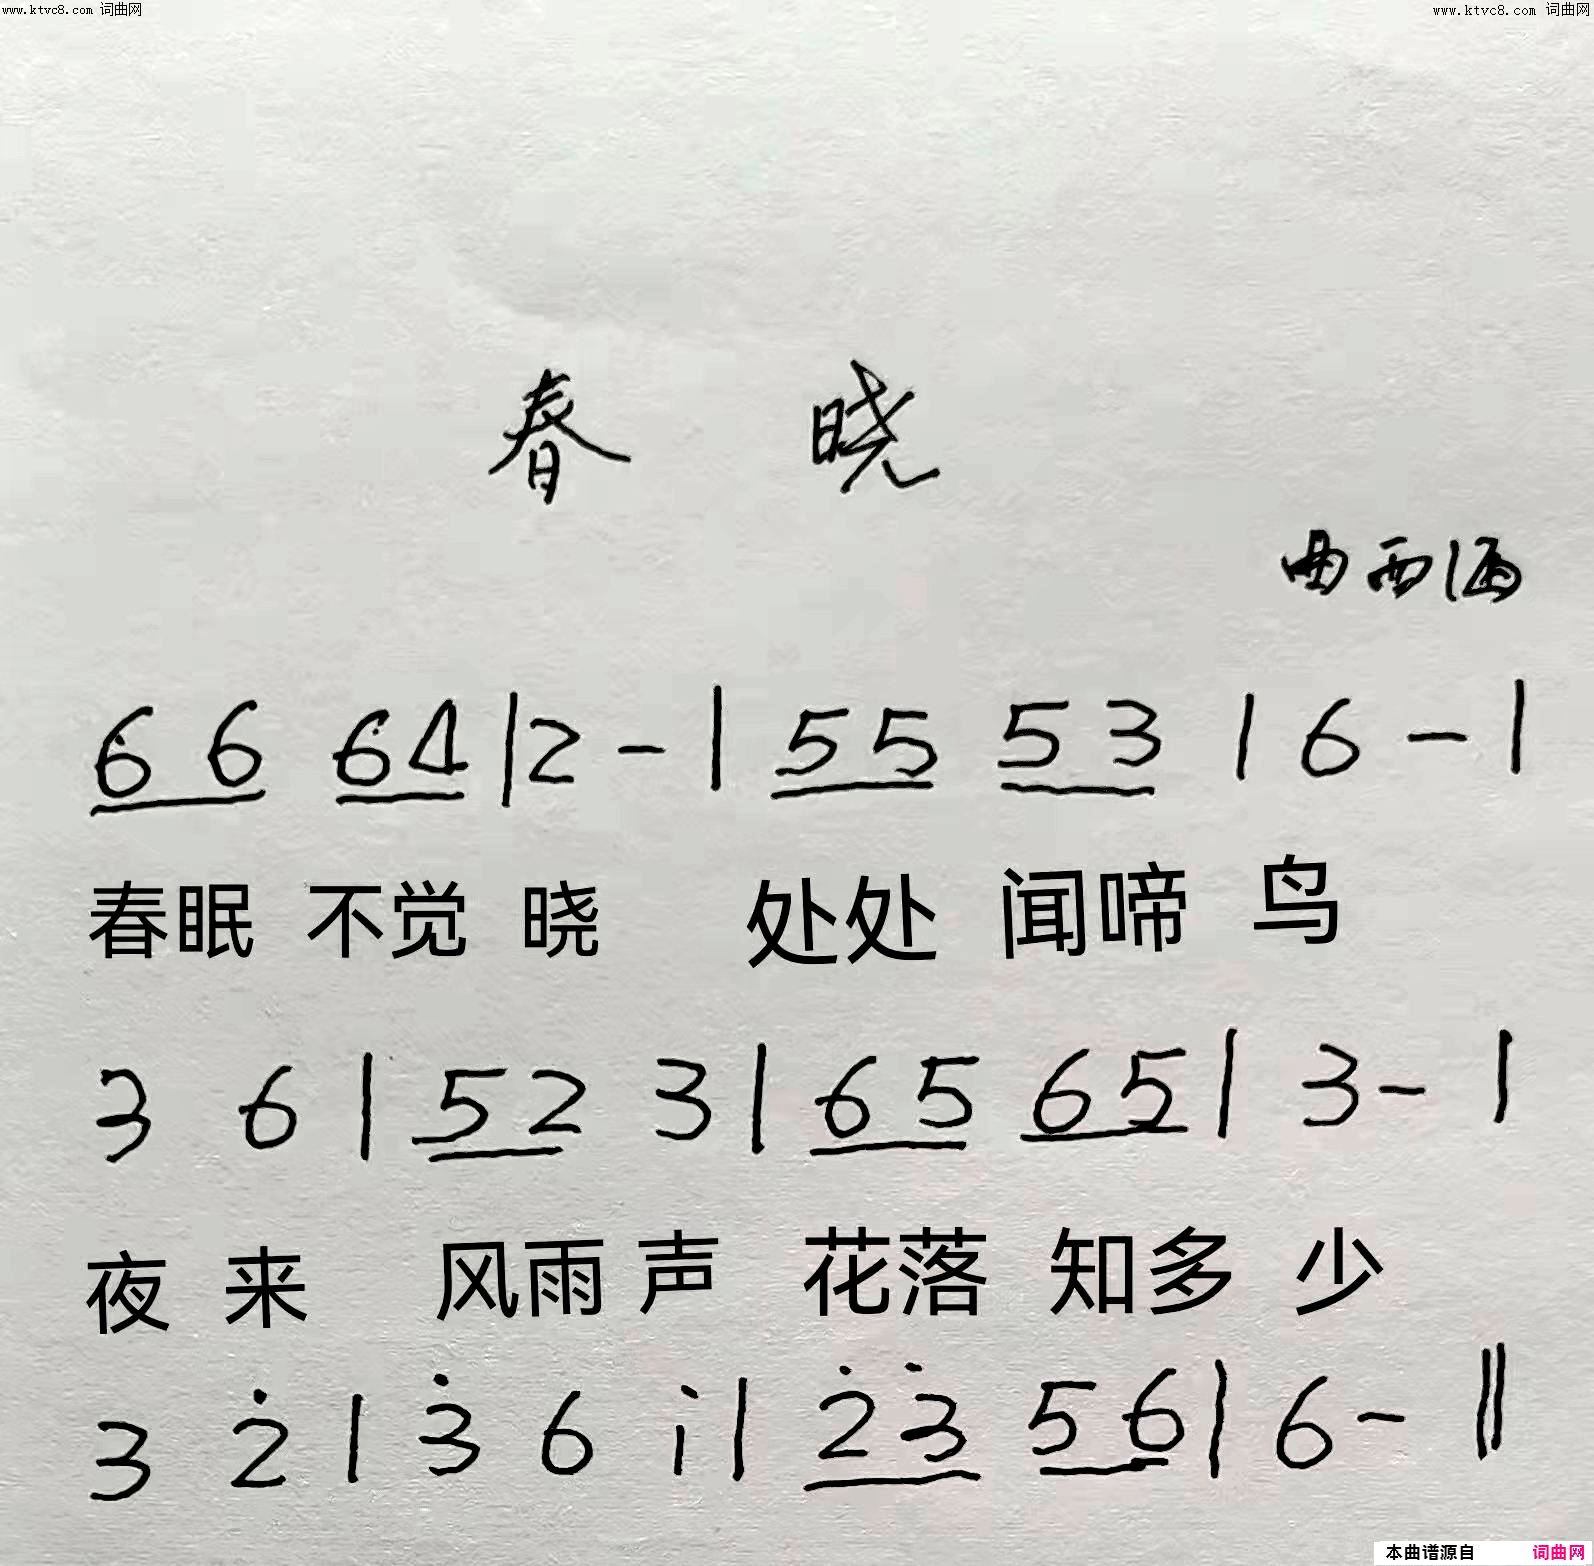 www.ktvc8.com 词曲网 www.ktvc8.com 词曲网
春 晓
曲西
6 6 6 4 | 2 - | 5 5 5 3 | 6 - |
春眠 不觉 晓 处处 闻啼 鸟
3 6 | 5 2 3 | 6 5 6 5 | 3 - |
夜 来 风雨 声 花落 知多 少
3 2̇ | 3̇ 6 i | 2̇ 3̇ 5 6 | 6 - ‖
本曲谱源自 词曲网